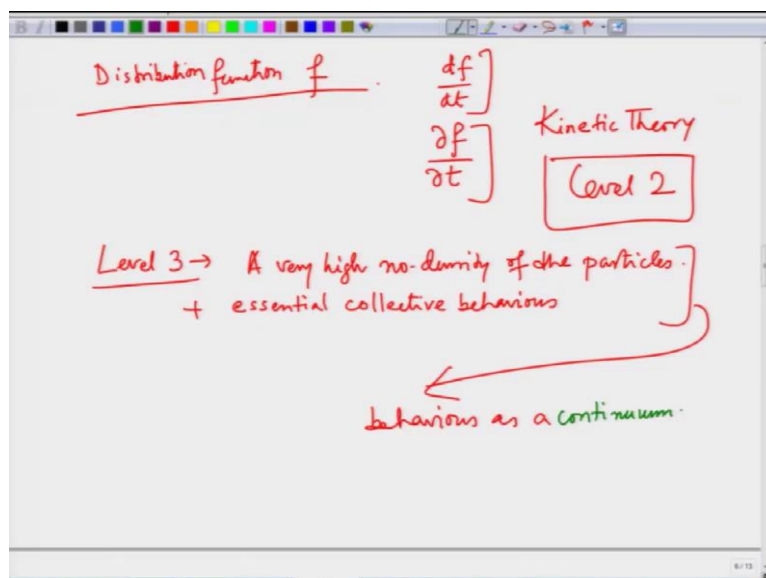 Distribution function f.
df
dt
∂f
∂t
Kinetic Theory
Level 2
Level 3 → A very high no-density of the particles.
+ essential collective behaviours
behaviours as a continuum.
6/13